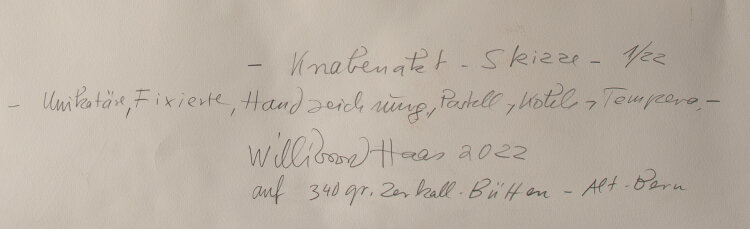 - Knabenakt - Skizze - 1/22
- Unikatäre, Fixierte, Handzeichnung, Pastell, Kotels, Tempera. -
Willibrord Haas 2022
auf 340 gr. Zerkall-Bütten - Alt-Bern